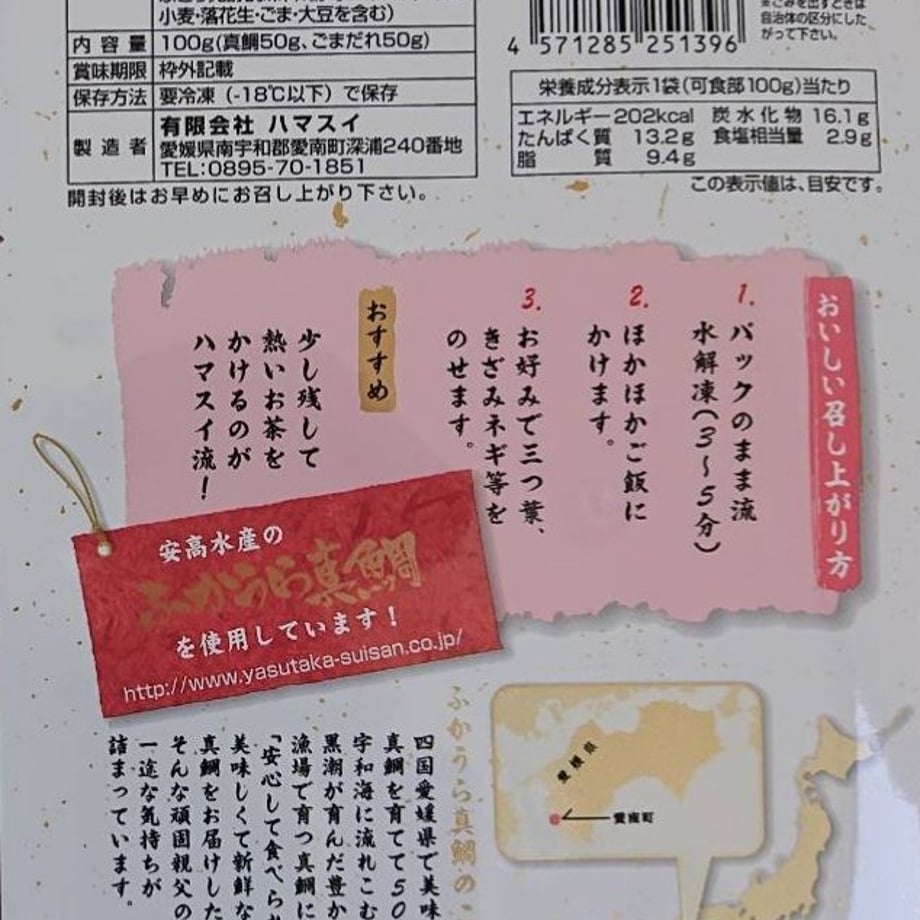 小麦・落花生・ごま・大豆を含む)
内容量 100g(真鯛50g、ごまだれ50g)
賞味期限 枠外記載
保存方法 要冷凍(-18℃以下)で保存
製造者 有限会社 ハマスイ
愛媛県南宇和郡愛南町深浦240番地
TEL:0895-70-1851
開封後はお早めにお召し上がり下さい。
4 571285 251396
※ごみを出すときは
自治体の区分にした
がって下さい。
栄養成分表示1袋(可食部100g)当たり
エネルギー 202kcal 炭水化物 16.1g
たんぱく質 13.2g 食塩相当量 2.9g
脂質 9.4g
この表示値は、目安です。
おいしい召し上がり方
1.
パックのまま流
水解凍(3~5分)
2.
ほかほかご飯に
かけます。
3.
お好みで三つ葉、
きざみネギ等を
のせます。
おすすめ
少し残して
熱いお茶を
かけるのが
ハマスイ流!
安高水産の
ふかうら真鯛
を使用しています!
http://www.yasutaka-suisan.co.jp/
愛媛県
愛南町
ふかうら真鯛の
四国愛媛県で美味
真鯛を育てて50
宇和海に流れこむ
黒潮が育んだ豊か
漁場で育つ真鯛に
「安心して食べられ
美味しくて新鮮な
真鯛をお届けした
そんな頑固親父の
一途な気持ちが
詰まっています。